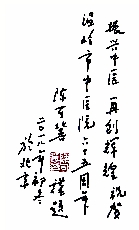 振兴中医 再创辉煌 祝贺
中医院六十五周年
陈可冀 谨题
二〇一八年初冬
於北京